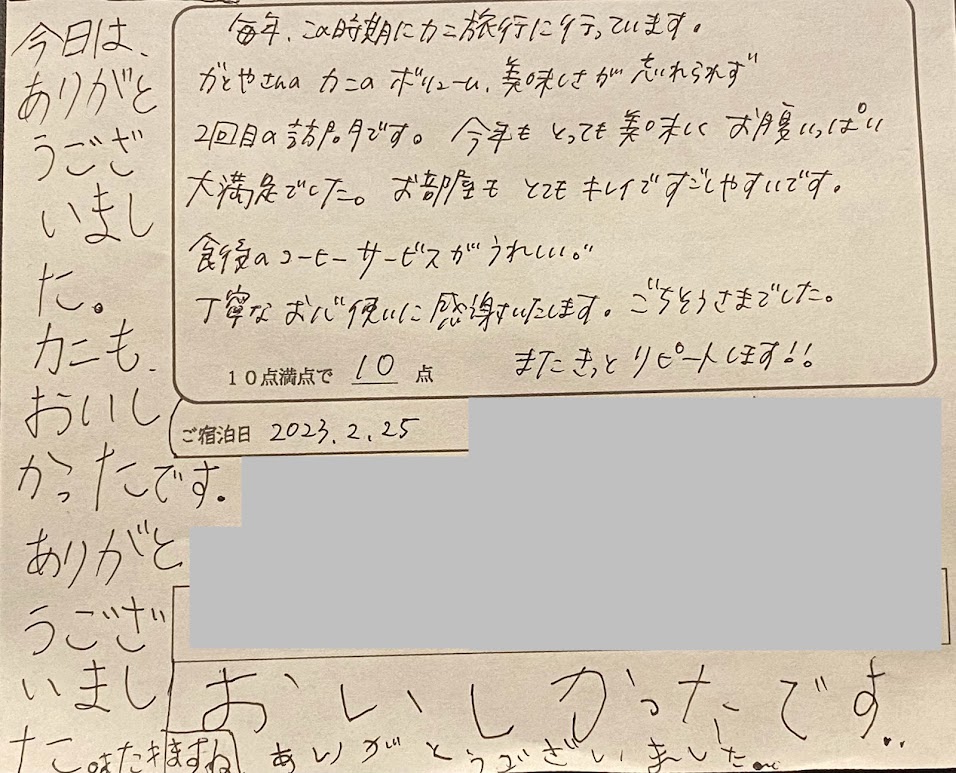 毎年、この時期にカニ旅行に行っています。
かどやさんの カニの ボリューム、美味しさが 忘れられず
2回目の訪問です。 今年も とっても 美味しく お腹いっぱい
大満足でした。 お部屋も とても キレイですごしやすいです。
食後のコーヒーサービスが うれしい。
丁寧な お心使いに 感謝いたします。 ごちそうさまでした。
またきっと リピートします!!
10点満点で 10 点
ご宿泊日 2023.2.25
今日は、
ありがと
うござ
いまし
た。
カニも、
おいし
かったです。
ありがと
うござ
いまし
た。またきますね
おいしかったです..
ありがとうございました。